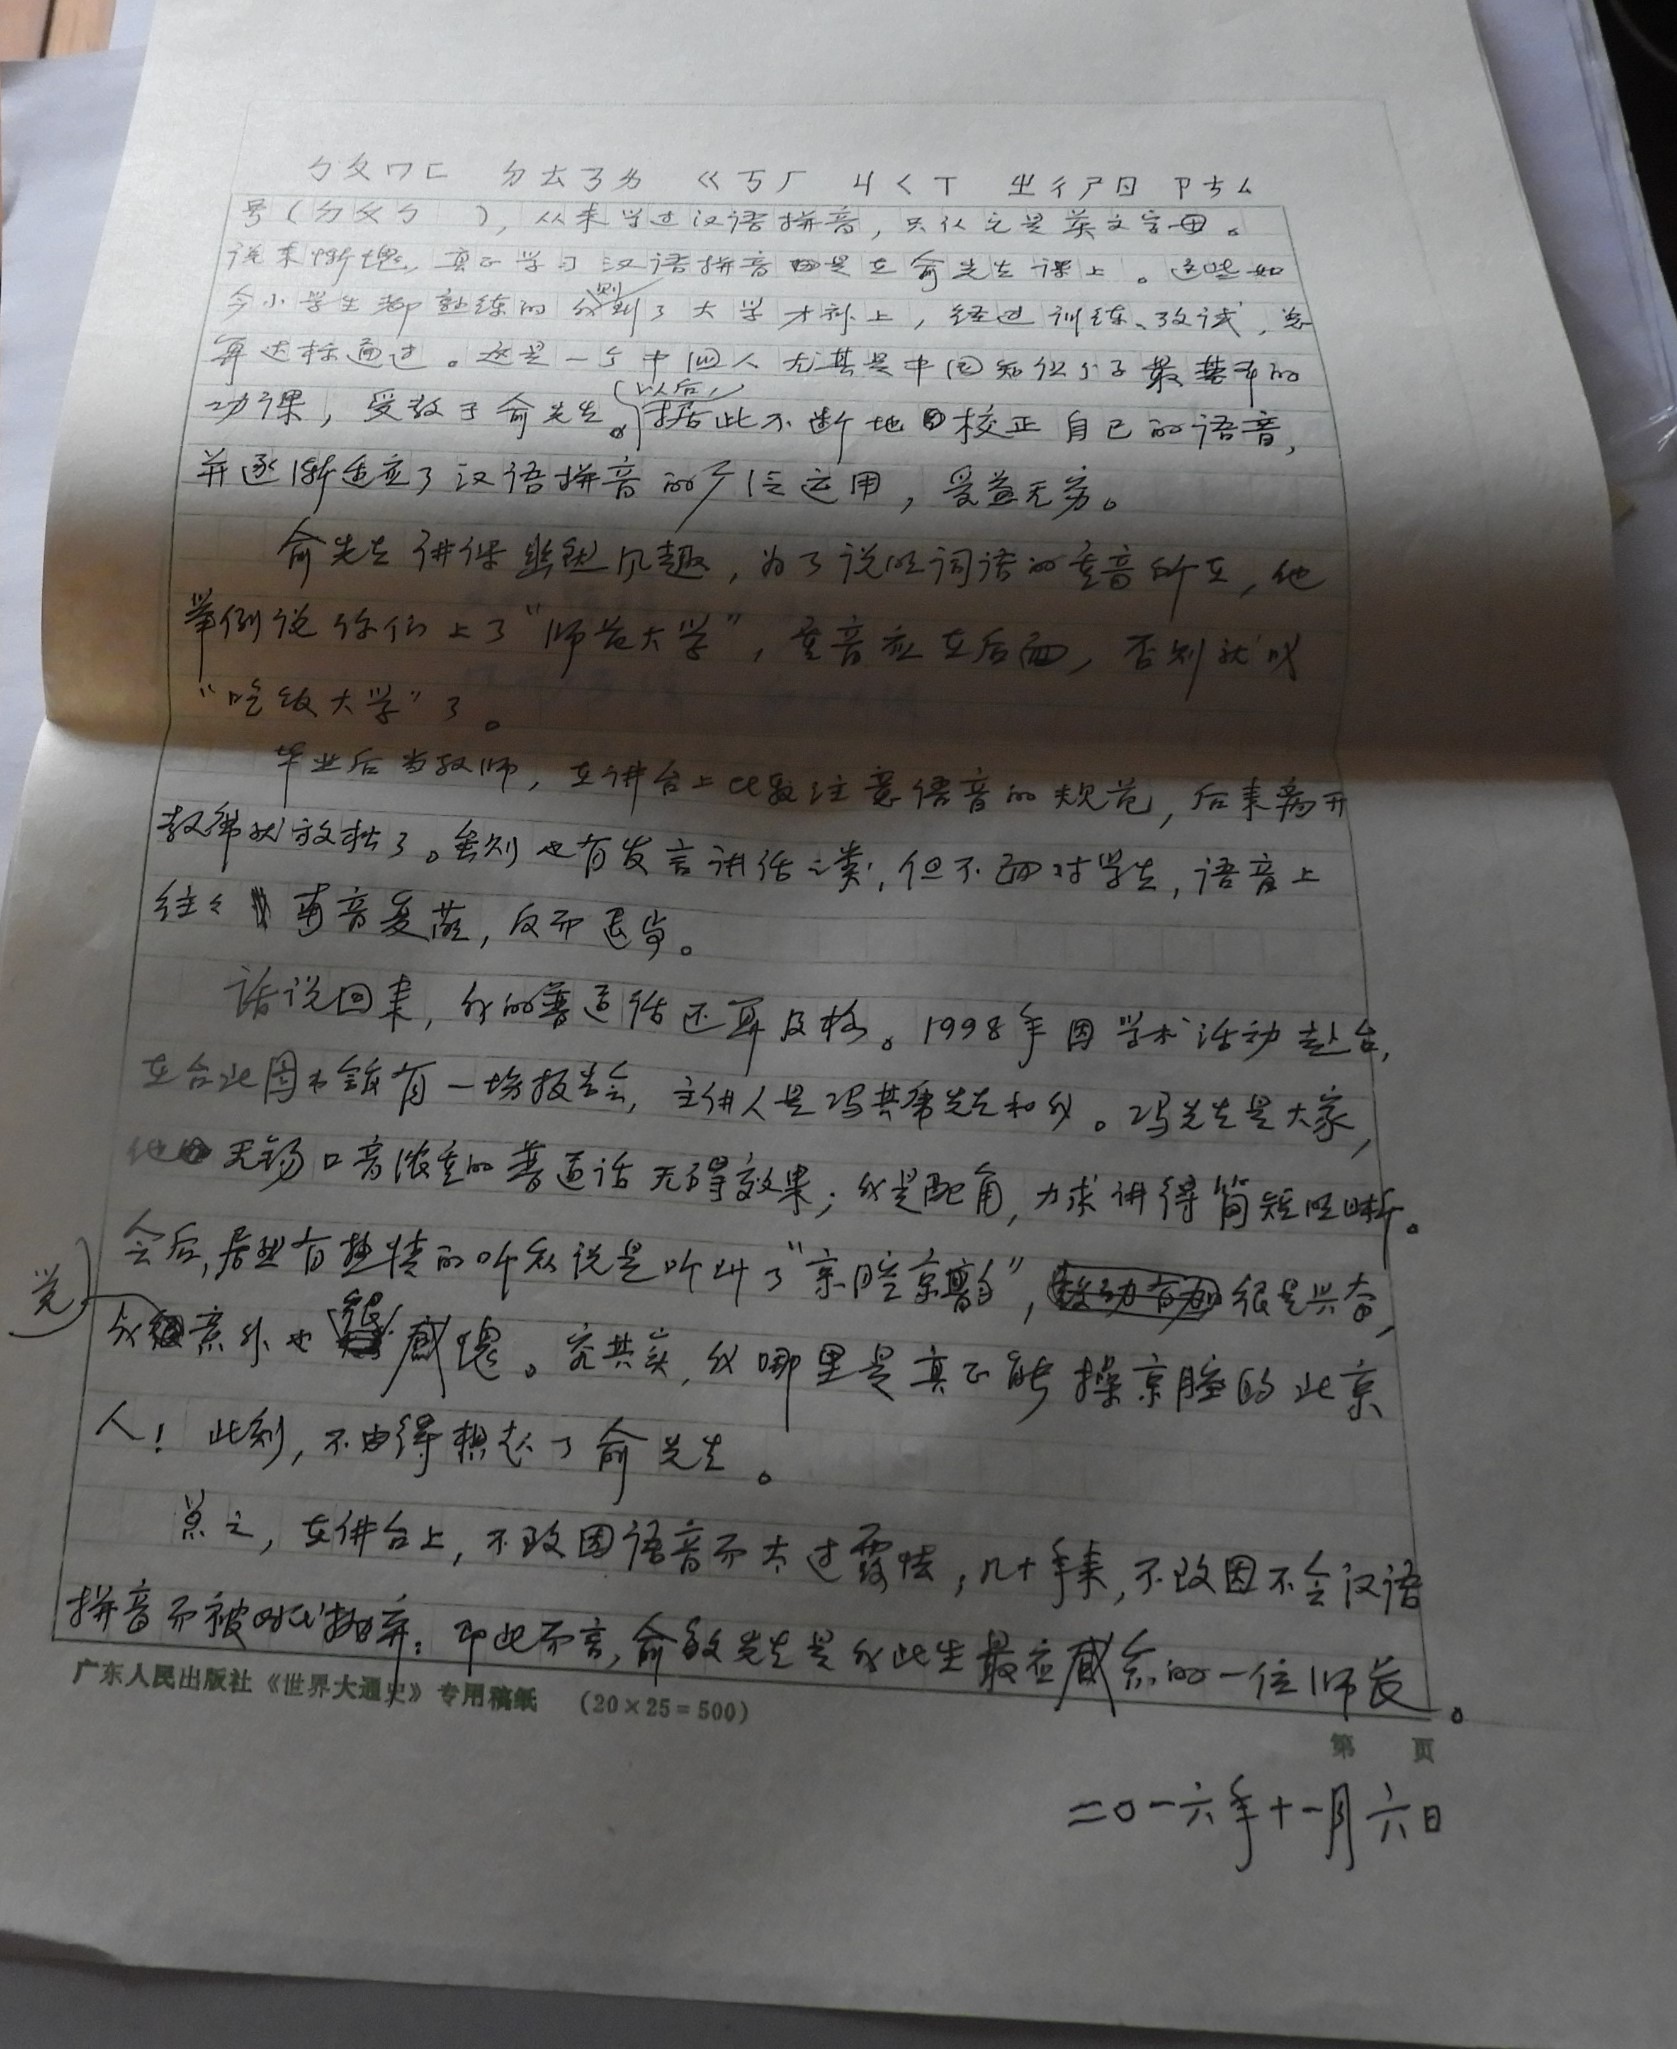 ㄅㄆㄇㄈ ㄉㄊㄋㄌ ㄍㄎㄏ ㄐㄑㄒ ㄓㄔㄕㄖ ㄗㄘㄙ
号（ㄅㄆㄅ ），从未学过汉语拼音，只认它是英文字母。
说来惭愧，真正学习汉语拼音是在俞先生课上。这些如
今小学生都熟练的我则到了大学才补上，经过训练、考试，总
算达标通过。这是一个中国人尤其是中国知识分子最基本的
功课，受教于俞先生。以后，据此不断地校正自己的语音，
并逐渐适应了汉语拼音的广泛运用，受益无穷。
俞先生讲课幽默风趣，为了说明词语的重音所在，他
举例说你们上了“师范大学”，重音应在后面，否则就成
“吃饭大学”了。
毕业后当教师，在讲台上比较注意语音的规范，后来离开
教师就放松了。虽则也有发言讲话之类，但不面对学生，语音上
往往南音复萌，反而退步。
话说回来，我的普通话还算及格。1998年因学术活动赴台，
在台北图书馆有一场报告会，主讲人是冯其庸先生和我。冯先生是大家，
他无锡口音浓重的普通话无碍效果；我是配角，力求讲得简短明晰。
会后，居然有热情的听众说是听到了“京腔京韵”，很是兴奋，
觉
我意外也很感愧。究其实，我哪里是真正能操京腔的北京
人！此刻，不由得想起了俞先生。
总之，在讲台上，不致因语音而太过露怯，几十年来，不致因不会汉语
拼音而被时代抛弃；即此而言，俞敏先生是我此生最应感念的一位师长。
广东人民出版社《世界大通史》专用稿纸 （20×25=500）
第 页
二〇一六年十一月六日